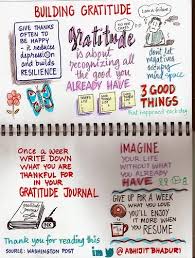 BUILDING GRATITUDE
GIVE THANKS
OFTEN TO
BE HAPPY
- it reduces
depression
and builds
RESILIENCE
Gratitude
is about
recognizing all
the good you
ALREADY
HAVE
I am a failure
don't let
negatives
occupy
mind space
3 GOOD
THINGS
that happened each day
Once a week
WRITE DOWN
WHAT YOU
ARE THANKFUL
FOR IN YOUR
GRATITUDE JOURNAL
Thank you for reading this
SOURCE: WASHINGTON POST
IMAGINE
YOUR LIFE
WITHOUT WHAT
YOU ALREADY
HAVE
GIVE UP FOR A WEEK
WHAT YOU LOVE
YOU'LL ENJOY
IT MORE
WHEN YOU
RESUME
@ ABHIJIT BHADURI